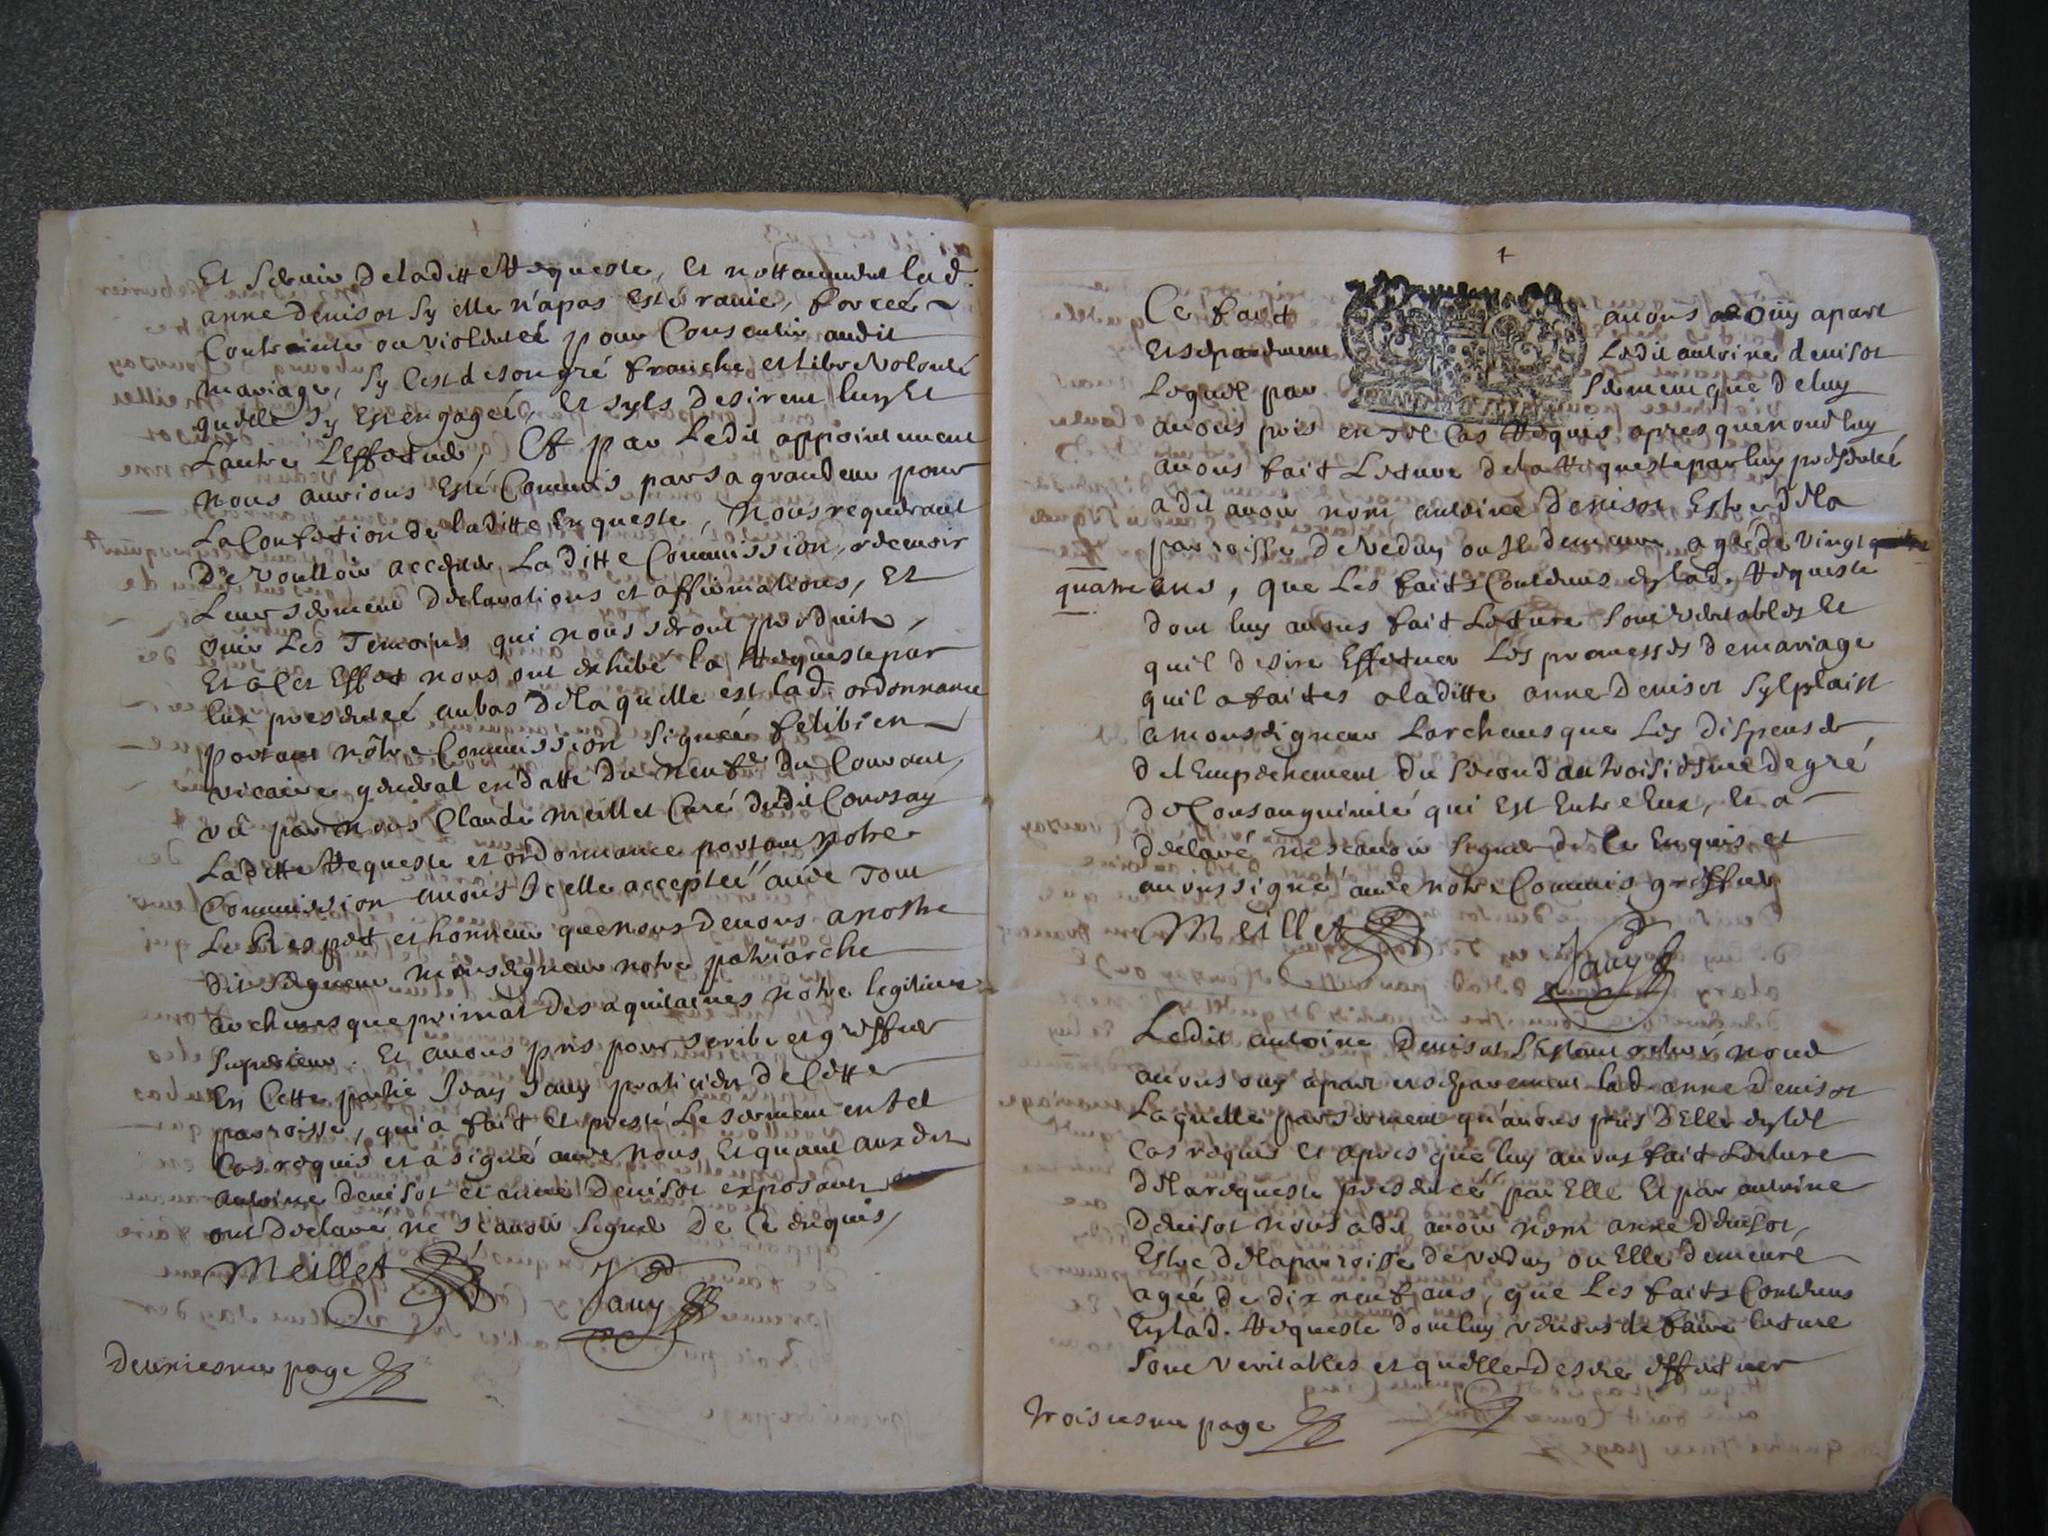 Et servir de laditte Requeste, Et nottamment lad.
anne denisot sy elle n'a pas esté ravie, forcée
Contrainte ou violentée pour Consentir audit
mariage, sy cest de son gré franche et libre volonté
quelle sy est engagée, et syls desirent lun et
Lautre Leffectuer, Et par Ledit appointement
nous aurions esté Commis par sa grandeur pour
La Confection de laditte Enqueste, nous requerant
De voulloir accepter Laditte Commission, recevoir
Leur serment declarations et affirmations, Et
ouir Les Temoins qui nous seront produits,
Et a cet Effet nous ont exhibé la Requeste par
Eux presentée au bas de laquelle est lad. ordonnance
portant nôtre Commission signée felibien
vicaire general en datte du neufe du Courant,
vû par nous Claude Meillet Curé dudit Coursay
Laditte Requeste et ordonnance portant notre
Commission avons Icelle acceptée avec Tout
Le Respect et honneur que nous devons a nostre
dit seigneur monseigneur notre patriarche
archevesque primat des aquitaines notre legitime
superieur. Et avons pris pour scribe et greffier
En Cette partie Jean Jauy praticien de Cette
parroisse, qui a fait et presté Le serment en tel
Cas requis et a signé avec nous Et quant aux dits
antoine denisot et anne denisot exposants
ont declaré ne scavoir signer De Ce enquis,
Meillet
Jauy
deuxiesme page
Ce fait avons ouy apart
Et separement Ledit antoine denisot
Lequel par serment que de luy
avons pris en tel Cas Requis apres que nous luy
avons fait Lecture de la Requeste par luy presentée
a dit avoir nom antoine denisot Estre de la
parroisse de Veden ou Il demeure agé de vingt
quatre ans, que Les faits Contenus esd. lad. Requeste
dont luy avons fait Lecture sont veritables et
quil desire Effectuer Les promesses de mariage
quil a faites a laditte anne denisot sylplaist
a monseigneur Larchevesque Les dispenser
de lEmpechement du second au troisiesme degré
de Consanguinité qui est Entre Eux, Et a
declaré ne scavoir signer de Ce Enquis et
avons signé avec notre Commis greffier
Meillet
Jauy
Ledit antoine denisot sestant retiré nous
avons ouy apart et separement lad. anne denisot
Laquelle par serment qu'avons pris dElle en tel
Cas requis et apres que luy avons fait Lecture
de la requeste presentée par Elle Et par antoine
denisot nous a dit avoir nom anne denisot,
Estre de la parroisse de veden ou Elle demeure
agée de dix neuf ans, que Les faits Contenus
En lad. Requeste dont luy venons de faire lecture
sont veritables et quelle desire effectuer
troisiesme page